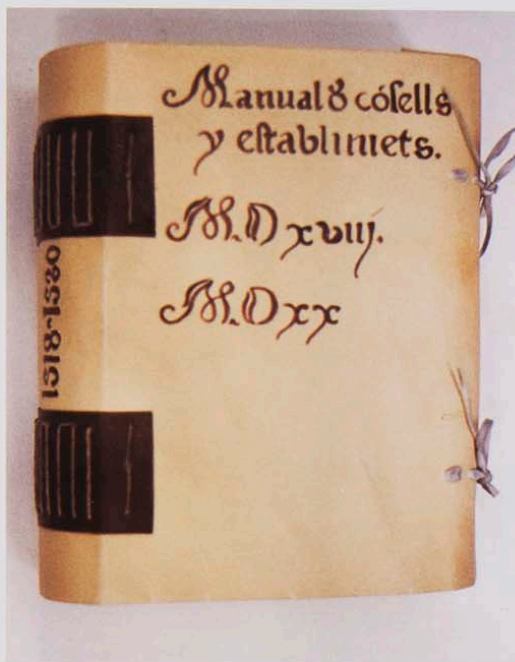 Manual ꝺ cóſells
y eſtablimets.
M.D xviij.
M.D xx
1518-1520